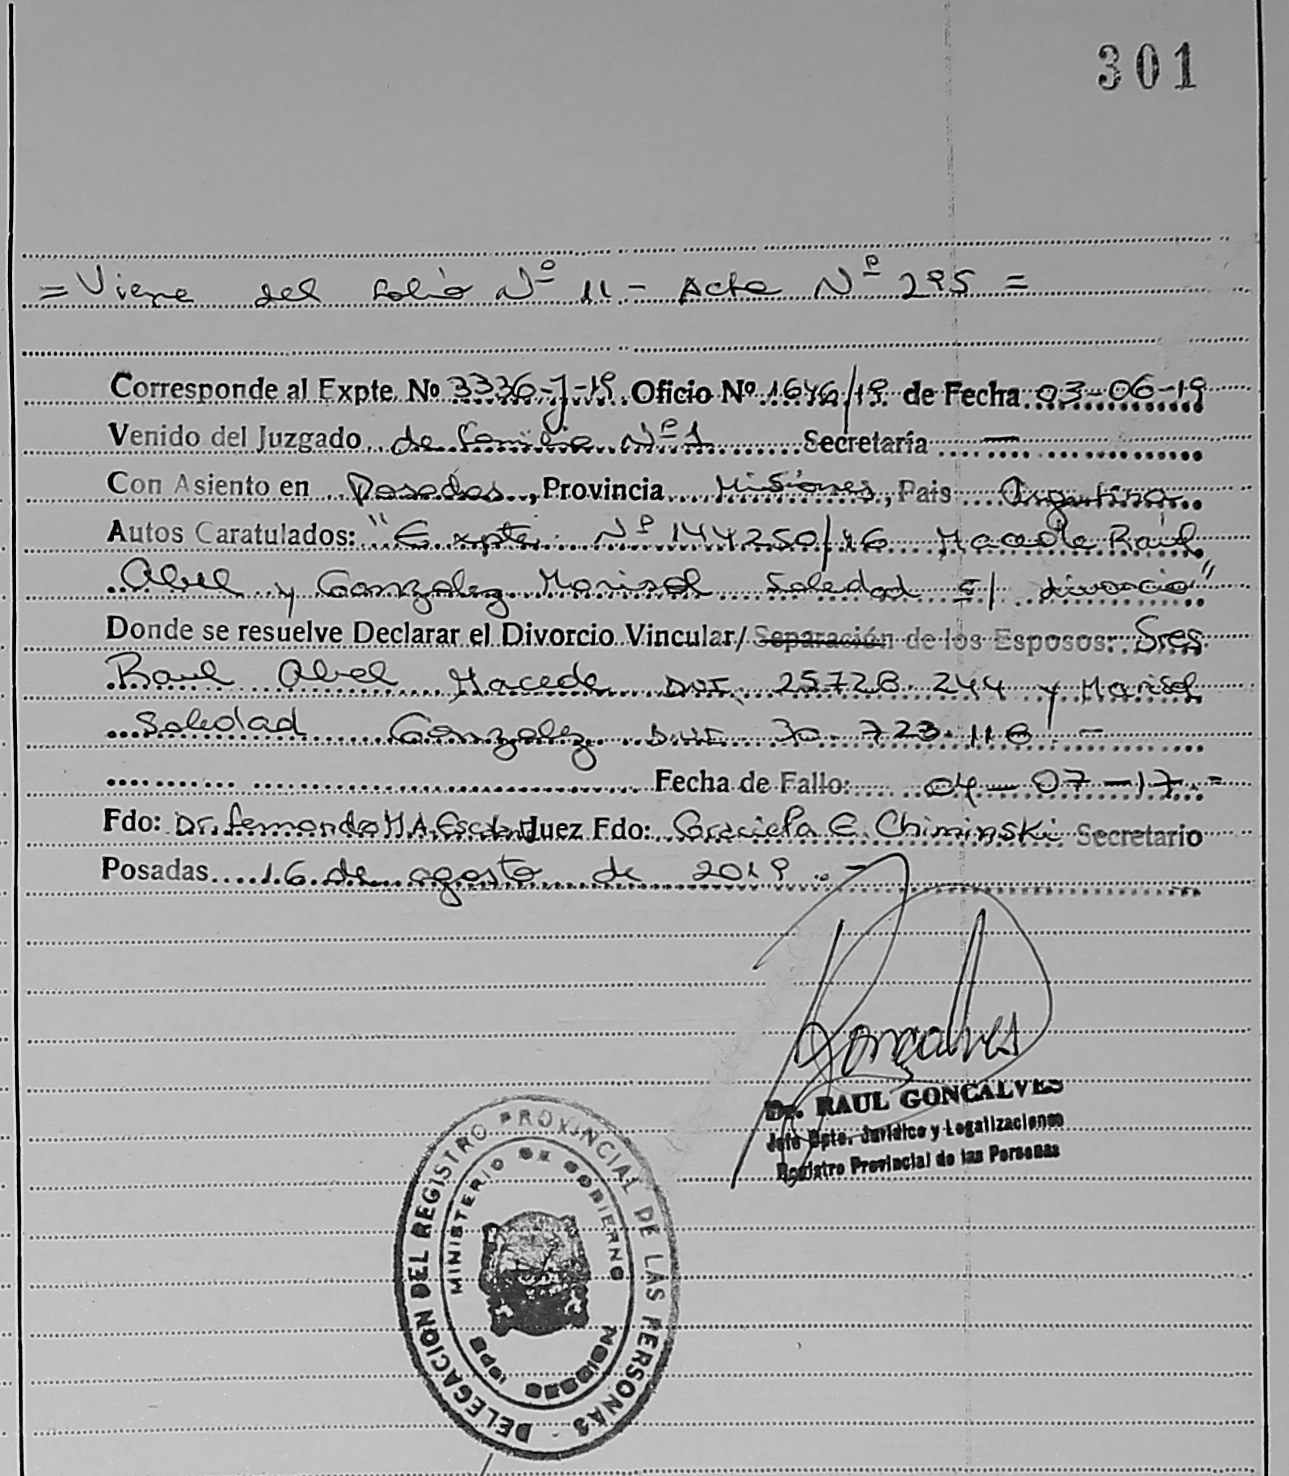 301
= Viene del folio Nº 11 - Acta Nº 295 =
Corresponde al Expte. Nº 3336-J-19 Oficio Nº 1646/19 de Fecha 03-06-19
Venido del Juzgado de familia Nº 1 Secretaría —
Con Asiento en Posadas, Provincia Misiones, Pais Argentina
Autos Caratulados: "Expte. Nº 144250/16 Macedo Raúl
Abel y Gonzalez Marisol Soledad s/ divorcio"
Donde se resuelve Declarar el Divorcio Vincular/ Separación de los Esposos: Sres
Raul Abel Macedo DNI. 25.728.244 y Marisol
Soledad Gonzalez DNI 30.723.116 -
Fecha de Fallo: 04-07-17 =
Fdo: Dr. Fernando M.A. Juez Fdo: Graciela E. Chiminski Secretario
Posadas 16 de agosto de 2019.-
Gonçalves
Dr. RAUL GONCALVES
Jefe Dpto. Jurídico y Legalizaciones
Registro Provincial de las Personas
DELEGACION DEL REGISTRO PROVINCIAL DE LAS PERSONAS
MINISTERIO DE GOBIERNO